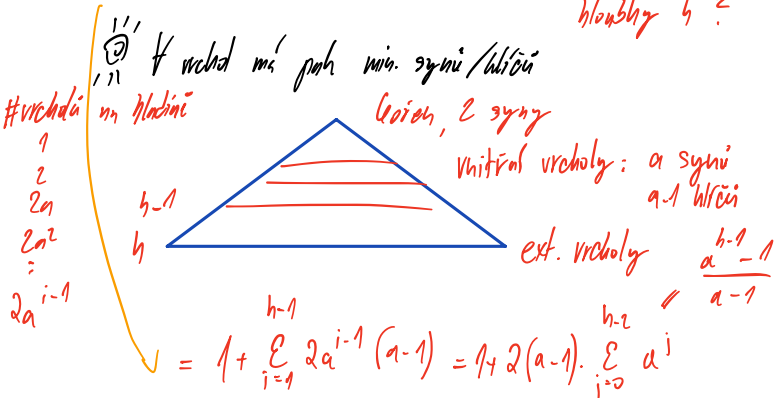 hloubky h ?
∀ vrchol má pak min. synů/klíčů
#vrcholů na hladině
kořen, 2 syny
1
2
2a
2a²
:
2a^{i-1}
h-1
h
vnitřní vrcholy: a synů
a-1 klíčů
ext. vrcholy
\frac{a^{h-1}-1}{a-1}
= 1 + \sum_{i=1}^{h-1} 2a^{i-1} (a-1) = 1 + 2(a-1) \cdot \sum_{j=0}^{h-2} a^j